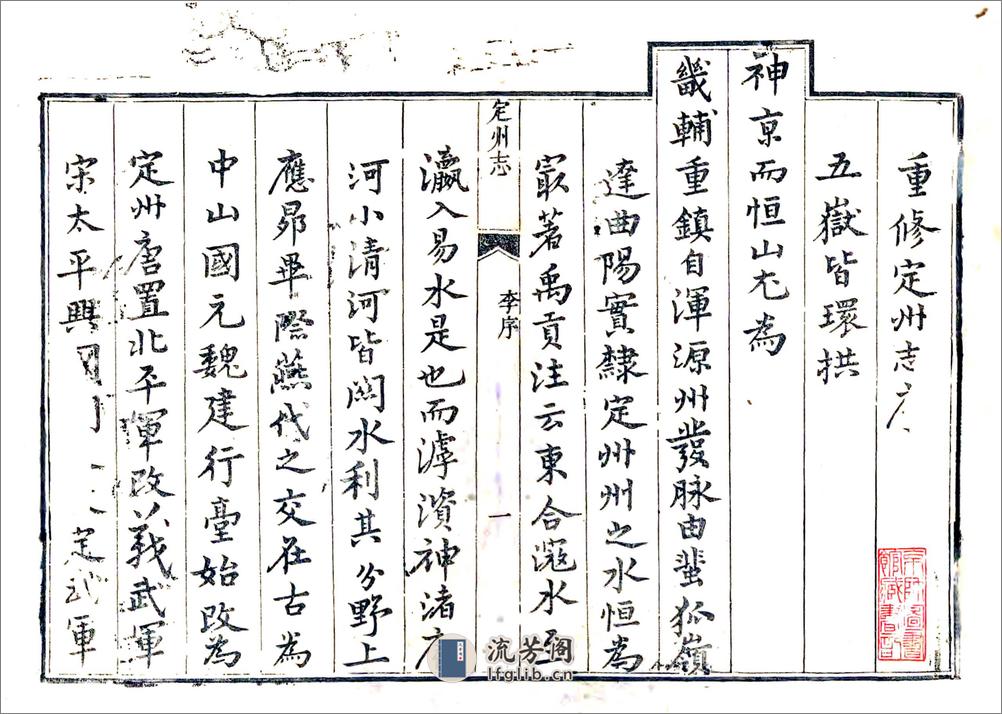 重修定州志序
五嶽皆環拱
神京而恒山尤為
畿輔重鎮自渾源州發脉由蜚狐嶺
達曲陽實隸定州州之水恒為
冣著禹貢注云東合滱水至
定州志
李序
一
瀛入易水是也而滹濱神渚
河小清河皆關水利其分野上
應昴畢際燕代之交在古為
中山國元魏建行臺始改為
定州唐置北平軍改義武軍
宋太平興國 定武軍
流芳阁
lfglib.cn